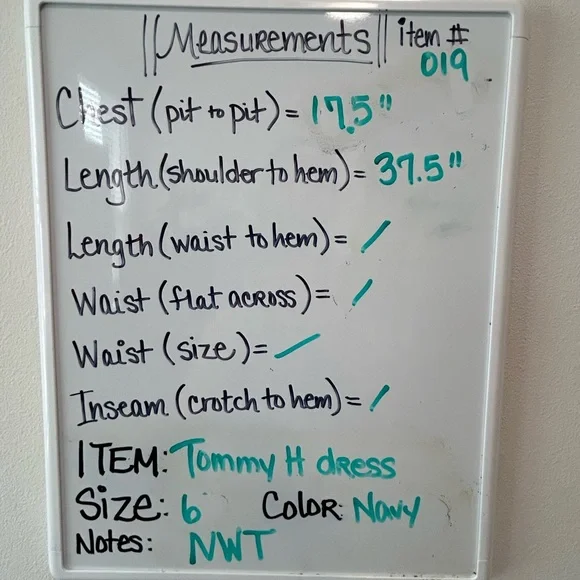 ||Measurements|| item #
019
Chest (pit to pit) = 17.5"
Length (shoulder to hem) = 37.5"
Length (waist to hem) = /
Waist (flat across) = /
Waist (size) = /
Inseam (crotch to hem) = /
ITEM: Tommy H dress
Size: 6 Color: Navy
Notes: NWT